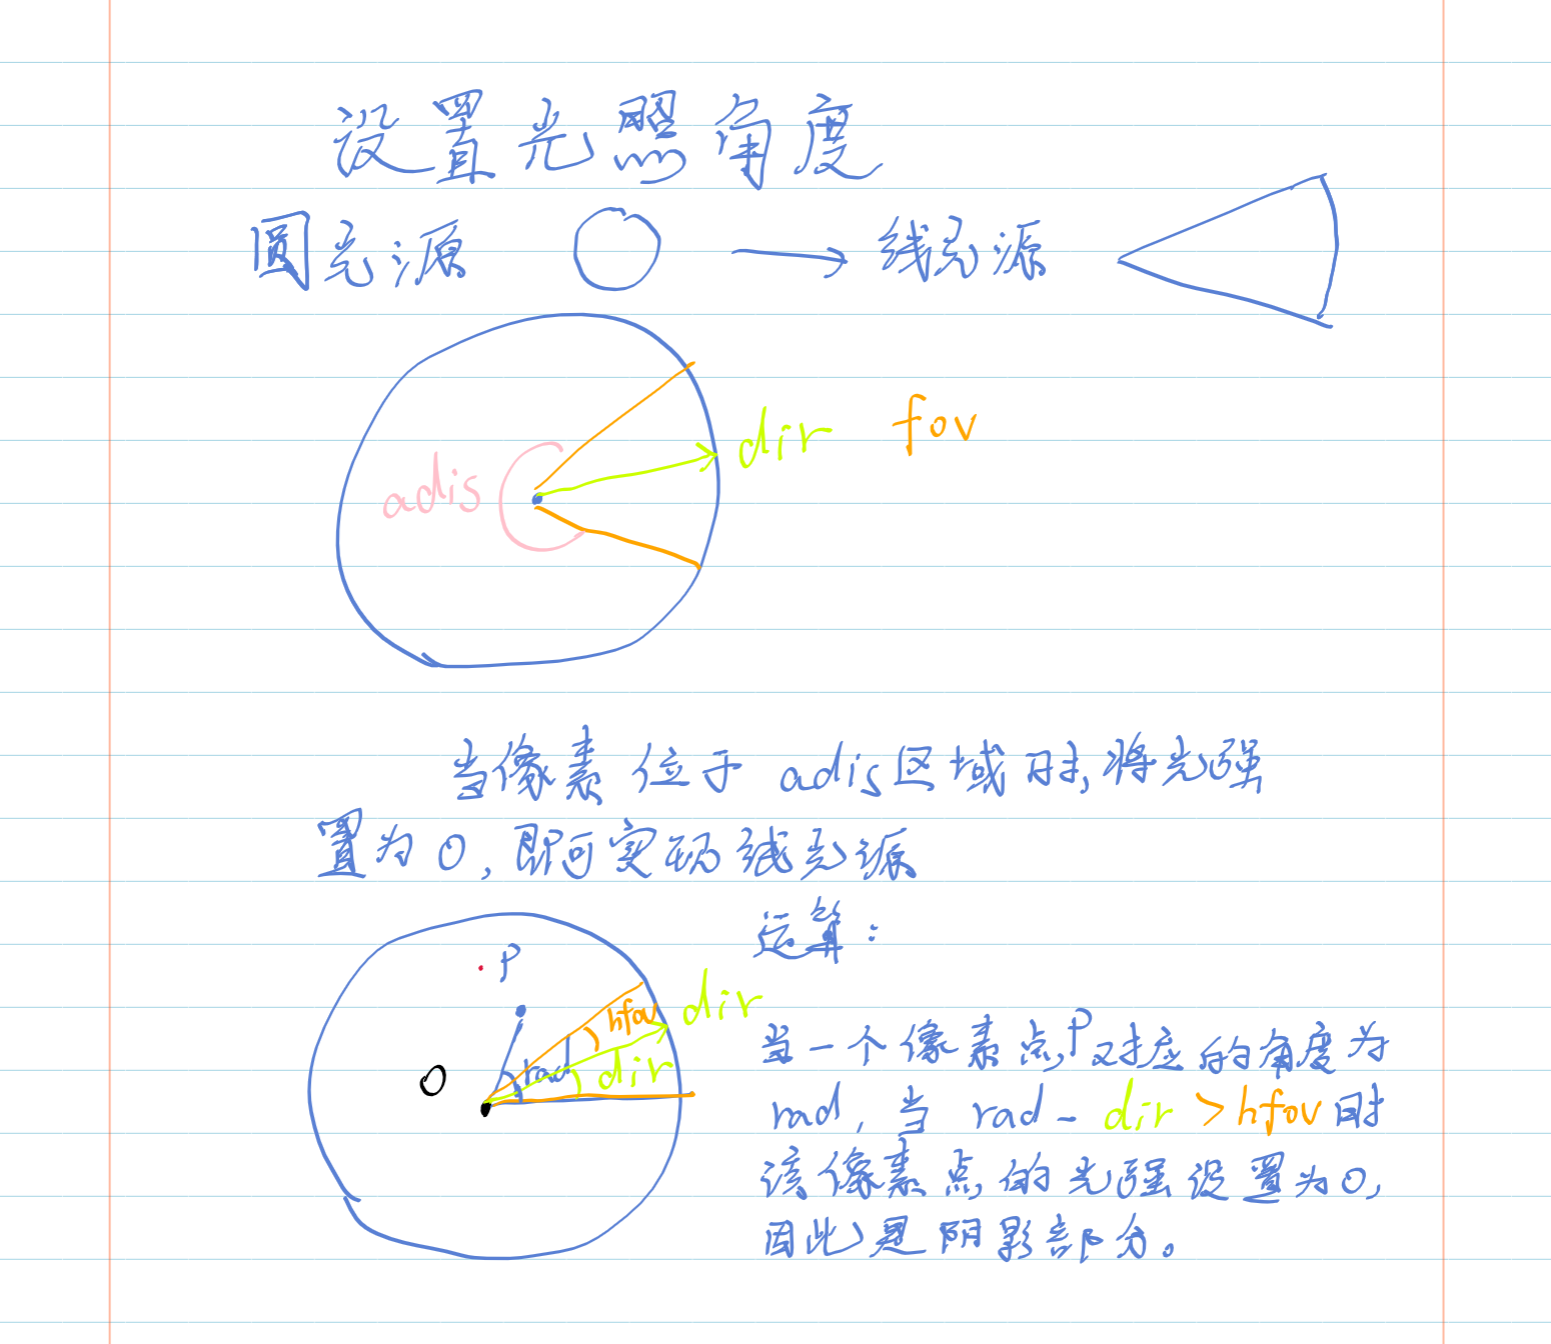 设置光照角度
圆光源 线光源
dir fov
adis
当像素位于adis区域时,将光强
置为0,即可实现线光源
运算:
P
hfov dir
rad dir
O
当一个像素点P对应的角度为
rad,当 rad-dir>hfov时
该像素点的光强设置为0,
因此是阴影部分。